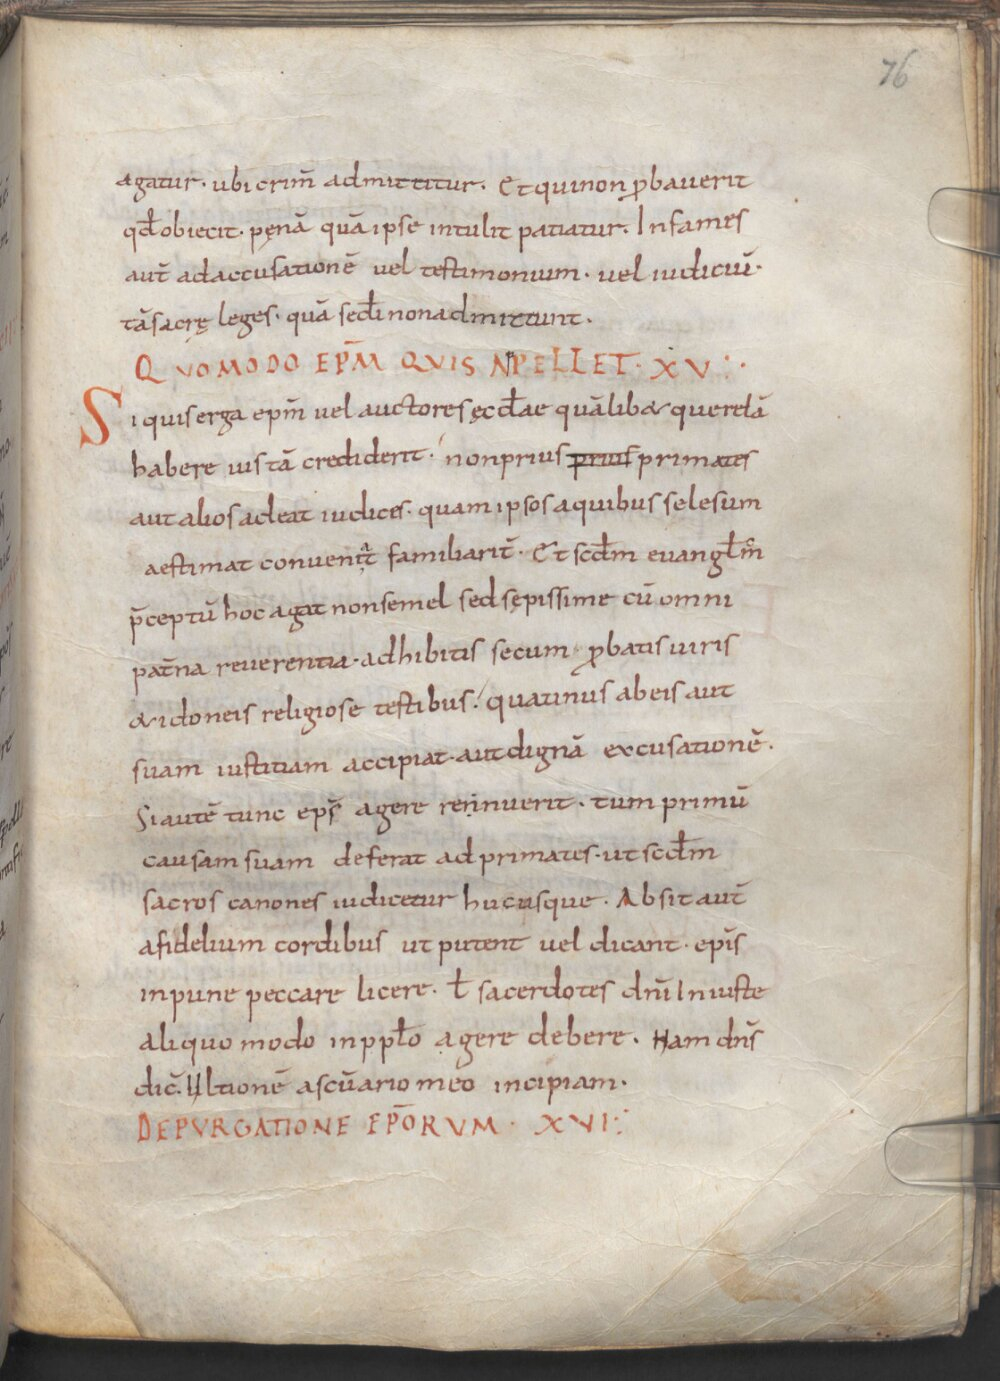 76
agatur. ubi crim̄ admittitur. Et qui non ꝓbaverit
qđ obiecit. pęnā quā ipse intulit patiatur. Infames
aut̄ ad accusationē vel testimonium. vel iudiciū.
tā sacrę leges. quā sedi non admittunt.
QVOMODO EPM̄ QVIS APPELLET. XV
Si quis erga epm̄ vel auctores ęccłae quālib& querelā
habere iustā crediderit. non prius prius primates
aut alios adeat iudices. quam ipsos a quibus se lesum
aestimat conveniat familiarit̄. Et scđm evangłm̄
p̄ceptū hoc agat non semel sed sępissime cū omni
pat̄na reverentia. adhibitis secum ꝓbatis viris
& idoneis religiose testibus. quatinus ab eis aut
suam iustitiam accipiat. aut dignā excusationē.
Si autē tunc eps̄ agere renuverit. tum primū
causam suam deferat ad primates. ut scđm
sacros canones iudicetur hucusque. Absit aut̄
a fidelium cordibus ut putent vel dicant. epīs
inpune peccare licere. ł sacerdotes dn̄i Iniuste
aliquo modo in ppło agere debere. Nam dn̄s
dic̄. Ultionē a sc̄uario meo incipiam.
DE PVRGATIONE EPŌRVM. XVI